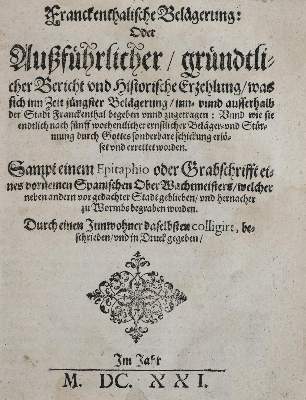 Franckenthalische Belägerung:
Oder
Außführlicher / gründtli-
cher Bericht vnd Historische Erzehlung / was
sich inn Zeit jüngster Belägerung / inn- vnnd ausserhalb
der Stadt Franckenthal begeben vnnd zugetragen: Vnnd wie sie
endtlich nach fünff wochentlicher ernstlicher Beläger- vnd Stür-
mung durch Gottes sonderbare schickung erlö-
set vnd errettet worden.
Sampt einem Epitaphio oder Grabschrifft ei-
nes vornemen Spanischen Ober Wachmeisters / welcher
neben andern vor gedachter Stadt geblieben / vnd hernacher
zu Wormbs begraben worden.
Durch einen Innwohner daselbsten colligirt, be-
schrieben / vnd in Druck gegeben /
Im Jahr
M. DC. XXI.